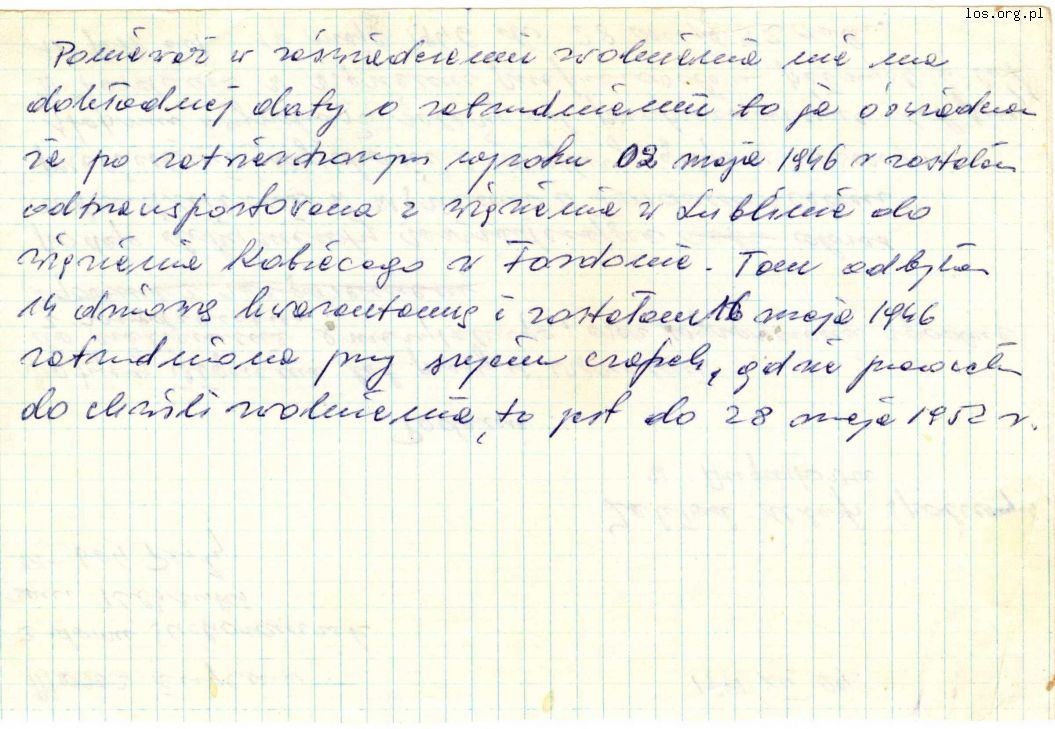 los.org.pl
Ponieważ w zaświadczeniu zwolnienia nie ma
dokładnej daty o zatrudnieniu to ja oświadczam
że po zatwierdzonym wyroku 02 maja 1946 r zostałam
odtransportowana z więzienia w Lublinie do
więzienia Kobiecego w Fordonie. Tam odbyłam
14 dniową kwarantannę i zostałam 16 maja 1946
zatrudniona przy szyciu czapek, gdzie pracowałam
do chwili zwolnienia, to jest do 28 maja 1952 r.